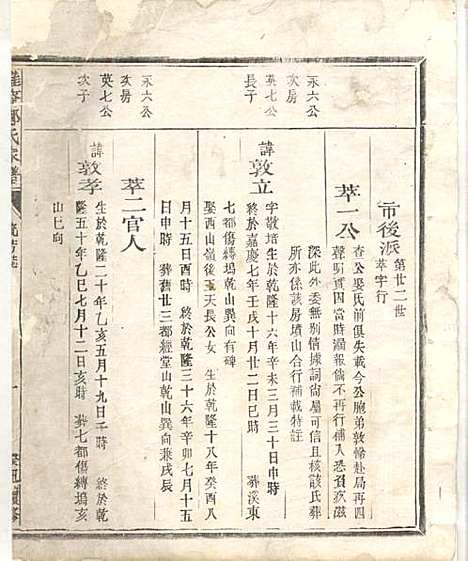 市後派 第廿二世
萃字行
萃一公
查公娶氏前俱失載今公胞弟敦歸赴局再四
聲明寔因當時漏報倘不再行補入恐貽孜滋
深此外委無別情據詞尚屬可信且核該氏葬
所亦係該房墳山合行補載特註
永六公
次房
英七公
長子
諱敦立
字敬培生於乾隆十六年辛未三月三十日申時
終於嘉慶七年壬戌十月廿二日巳時 葬溪東
七都傷縛塢乾山巽向有碑
娶西山嶺後王天長公女 生於乾隆十八年癸酉八
月十五日酉時終於乾隆三十六年辛卯七月十五
日申時 葬舊廿三都經堂山乾山巽向兼戌辰
永六公
次房
英七公
次子
萃二官人
諱敦孝
生於乾隆二十年乙亥五月十九日子時 終於乾
隆五十年乙巳七月十二日亥時 葬七都傷縛塢亥
山巳向
氏家譜